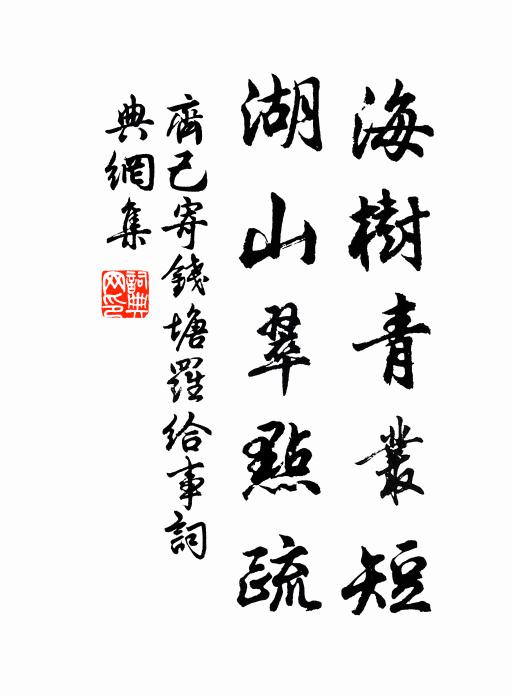 海樹青叢短
湖山翠點疏
齊己寄錢塘羅給事詞
典網集
詞典
网印